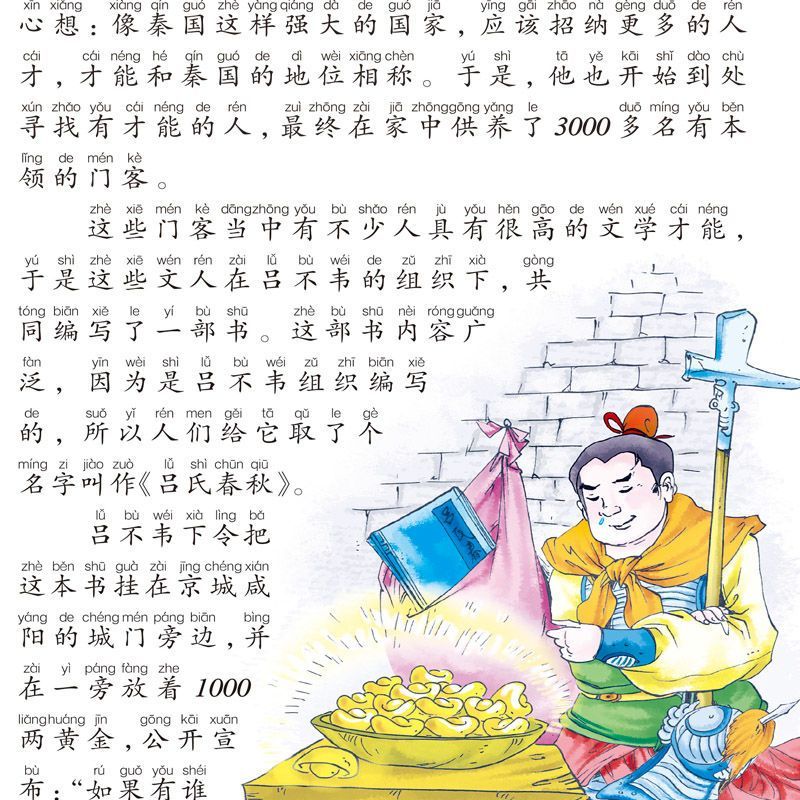 xīn xiǎng xiàng qín guó zhè yàng qiáng dà de guó jiā yīng gāi zhāo nà gèng duō de rén
心想：像秦国这样强大的国家，应该招纳更多的人
cái cái néng hé qín guó de dì wèi xiāng chèn yú shì tā yě kāi shǐ dào chù
才，才能和秦国的地位相称。于是，他也开始到处
xún zhǎo yǒu cái néng de rén zuì zhōng zài jiā zhōng gōng yǎng le duō míng yǒu běn
寻找有才能的人，最终在家中供养了3000多名有本
lǐng de mén kè
领的门客。
zhè xiē mén kè dāng zhōng yǒu bù shǎo rén jù yǒu hěn gāo de wén xué cái néng
这些门客当中有不少人具有很高的文学才能，
yú shì zhè xiē wén rén zài lǚ bù wéi de zǔ zhī xià gòng
于是这些文人在吕不韦的组织下，共
tóng biān xiě le yí bù shū zhè bù shū nèi róng guǎng
同编写了一部书。这部书内容广
fàn yīn wèi shì lǚ bù wéi zǔ zhī biān xiě
泛，因为是吕不韦组织编写
de suǒ yǐ rén men gěi tā qǔ le gè
的，所以人们给它取了个
míng zi jiào zuò lǚ shì chūn qiū
名字叫作《吕氏春秋》。
lǚ bù wéi xià lìng bǎ
吕不韦下令把
zhè běn shū guà zài jīng chéng xián
这本书挂在京城咸
yáng de chéng mén páng biān bìng
阳的城门旁边，并
zài yì páng fàng zhe
在一旁放着1000
liǎng huáng jīn gōng kāi xuān
两黄金，公开宣
bù rú guǒ yǒu shéi
布：“如果有谁